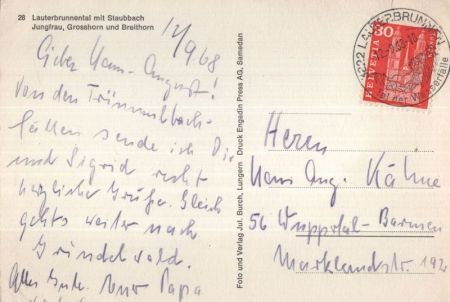 28 Lauterbrunnental mit Staubbach
Jungfrau, Grosshorn und Breithorn
12/9/68
Lieber Hans-August!
Von den Trümmelbach-
fällen sende ich Dir
und Sigrid recht
herzliche Grüße. Gleich
gehts weiter nach
Grindelwald.
Alles Gute. Euer Papa
Foto und Verlag Jul. Burch, Lungern Druck Engadin Press AG, Samedan
3822 LAUTERBRUNNEN
Tal der Wasserfälle
HELVETIA
30
Herrn
Hans Aug. Kähne
56 Wuppertal-Barmen
Marklandstr. 192